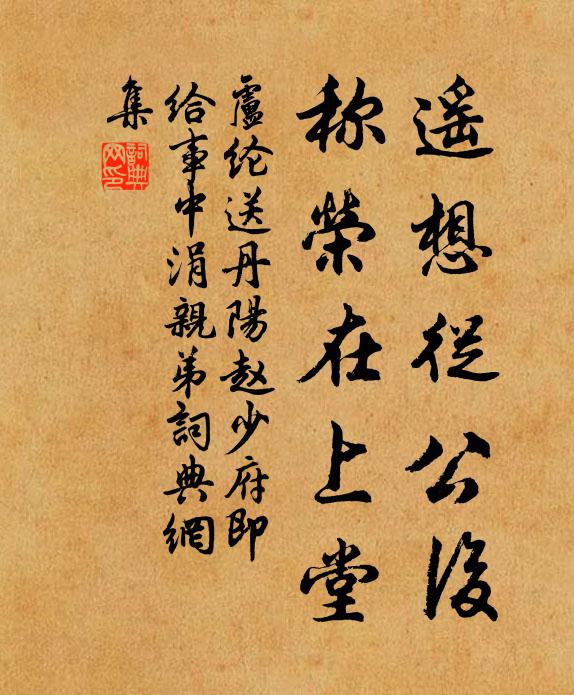 遥想從公後
称榮在上堂
盧纶送丹陽赵少府即
给事中涓親弟詞典網
集
詞典网印